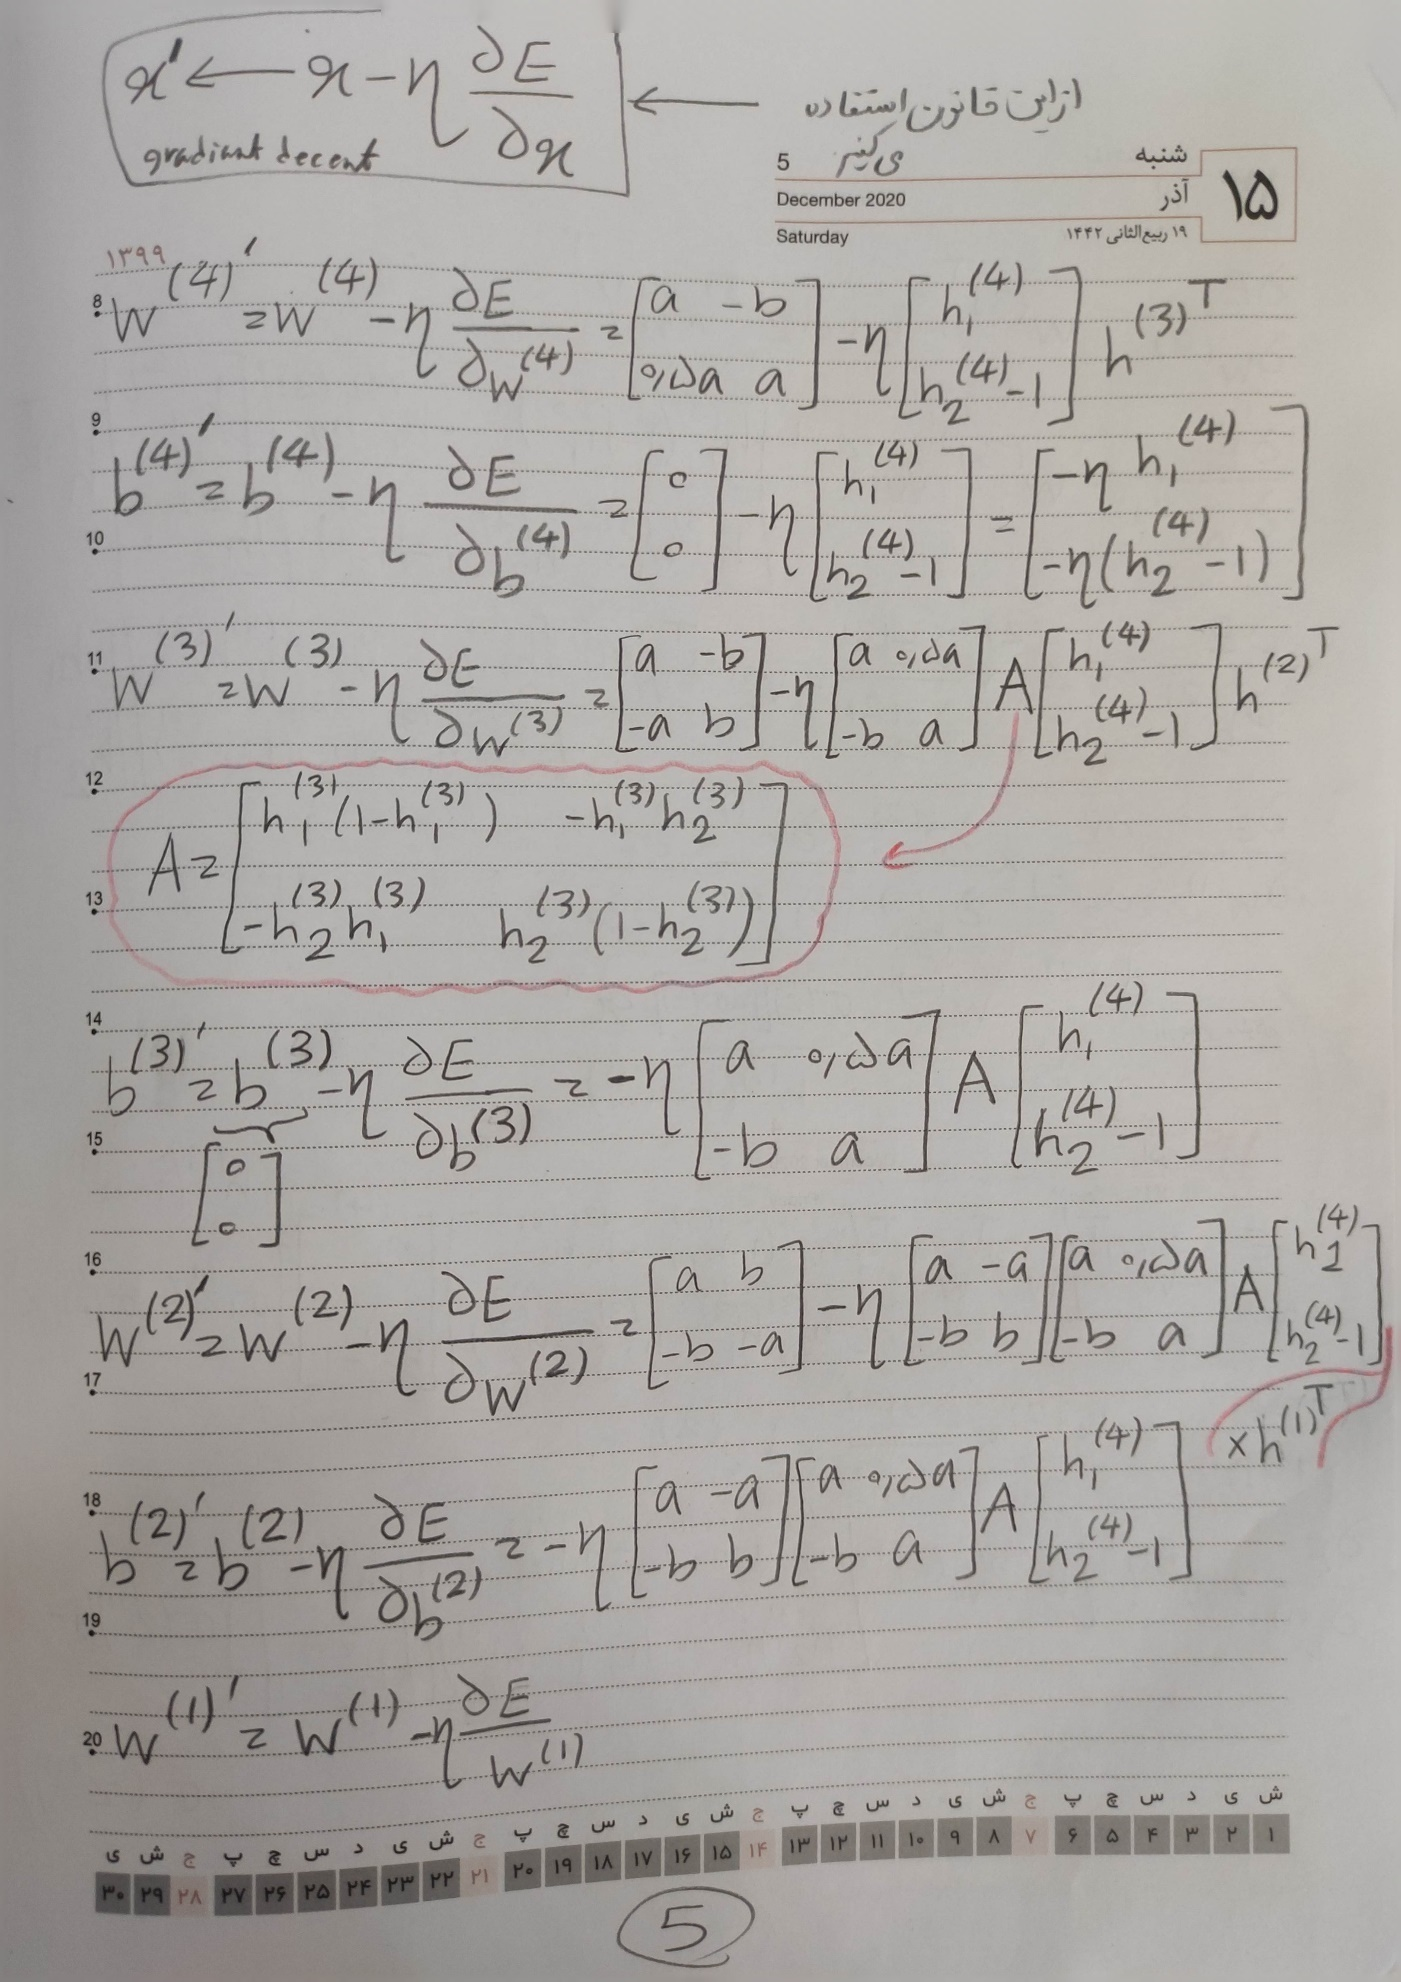 x' ← x - η ∂E/∂x
gradiant decent
← از این قانون استفاده
می کنیم
۱۵
شنبه
5
آذر
December 2020
۱۹ ربیع‌الثانی ۱۴۴۲
Saturday
۱۳۹۹
8
W^(4)' = W^(4) - η ∂E/∂W^(4) = [a -b; ۰,۵a a] - η [h₁^(4); h₂^(4) - 1] h^(3)T
9
b^(4)' = b^(4) - η ∂E/∂b^(4) = [0; 0] - η [h₁^(4); h₂^(4) - 1] = [-η h₁^(4); -η(h₂^(4) - 1)]
10
11
W^(3)' = W^(3) - η ∂E/∂W^(3) = [a -b; -a b] - η [a ۰,۵a; -b a] A [h₁^(4); h₂^(4) - 1] h^(2)T
12
A = [h₁^(3) (1 - h₁^(3)) -h₁^(3) h₂^(3); -h₂^(3) h₁^(3) h₂^(3) (1 - h₂^(3))]
13
14
b^(3)' = b^(3) - η ∂E/∂b^(3) = -η [a ۰,۵a; -b a] A [h₁^(4); h₂^(4) - 1]
15
[0; 0]
16
W^(2)' = W^(2) - η ∂E/∂W^(2) = [a b; -b -a] - η [a -a; -b b] [a ۰,۵a; -b a] A [h₁^(4); h₂^(4) - 1]
17
× h^(1)T
18
b^(2)' = b^(2) - η ∂E/∂b^(2) = -η [a -a; -b b] [a ۰,۵a; -b a] A [h₁^(4); h₂^(4) - 1]
19
20
W^(1)' = W^(1) - η ∂E/W^(1)
ش ی د س چ پ ج ش ی د س چ پ ج ش ی د س چ پ ج ش ی د س چ پ ج ش ی
۱ ۲ ۳ ۴ ۵ ۶ ۷ ۸ ۹ ۱۰ ۱۱ ۱۲ ۱۳ ۱۴ ۱۵ ۱۶ ۱۷ ۱۸ ۱۹ ۲۰ ۲۱ ۲۲ ۲۳ ۲۴ ۲۵ ۲۶ ۲۷ ۲۸ ۲۹ ۳۰
5